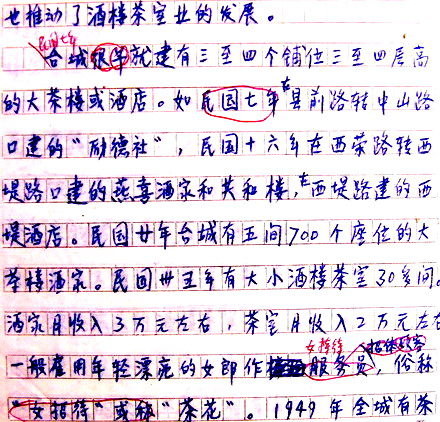 也推动了酒楼茶室业的发展。
民国七年
台城很早就建有三至四个铺位三至四层高
的大茶楼或酒店。如民国七年在县前路转中山路
口建的“励德社”，民国十六年在西荣路转西
堤路口建的燕喜酒家和共和楼，在西堤路建的西
堤酒店。民国廿年台城有五间700个座位的大
茶楼酒家。民国卅五年有大小酒楼茶室30多间。
酒家月收入3万元左右，茶室月收入2万元左右
女招待 招徕顾客
一般雇用年轻漂亮的女郎作服务员，俗称
“女招待”或称“茶花”。1949年全城有茶